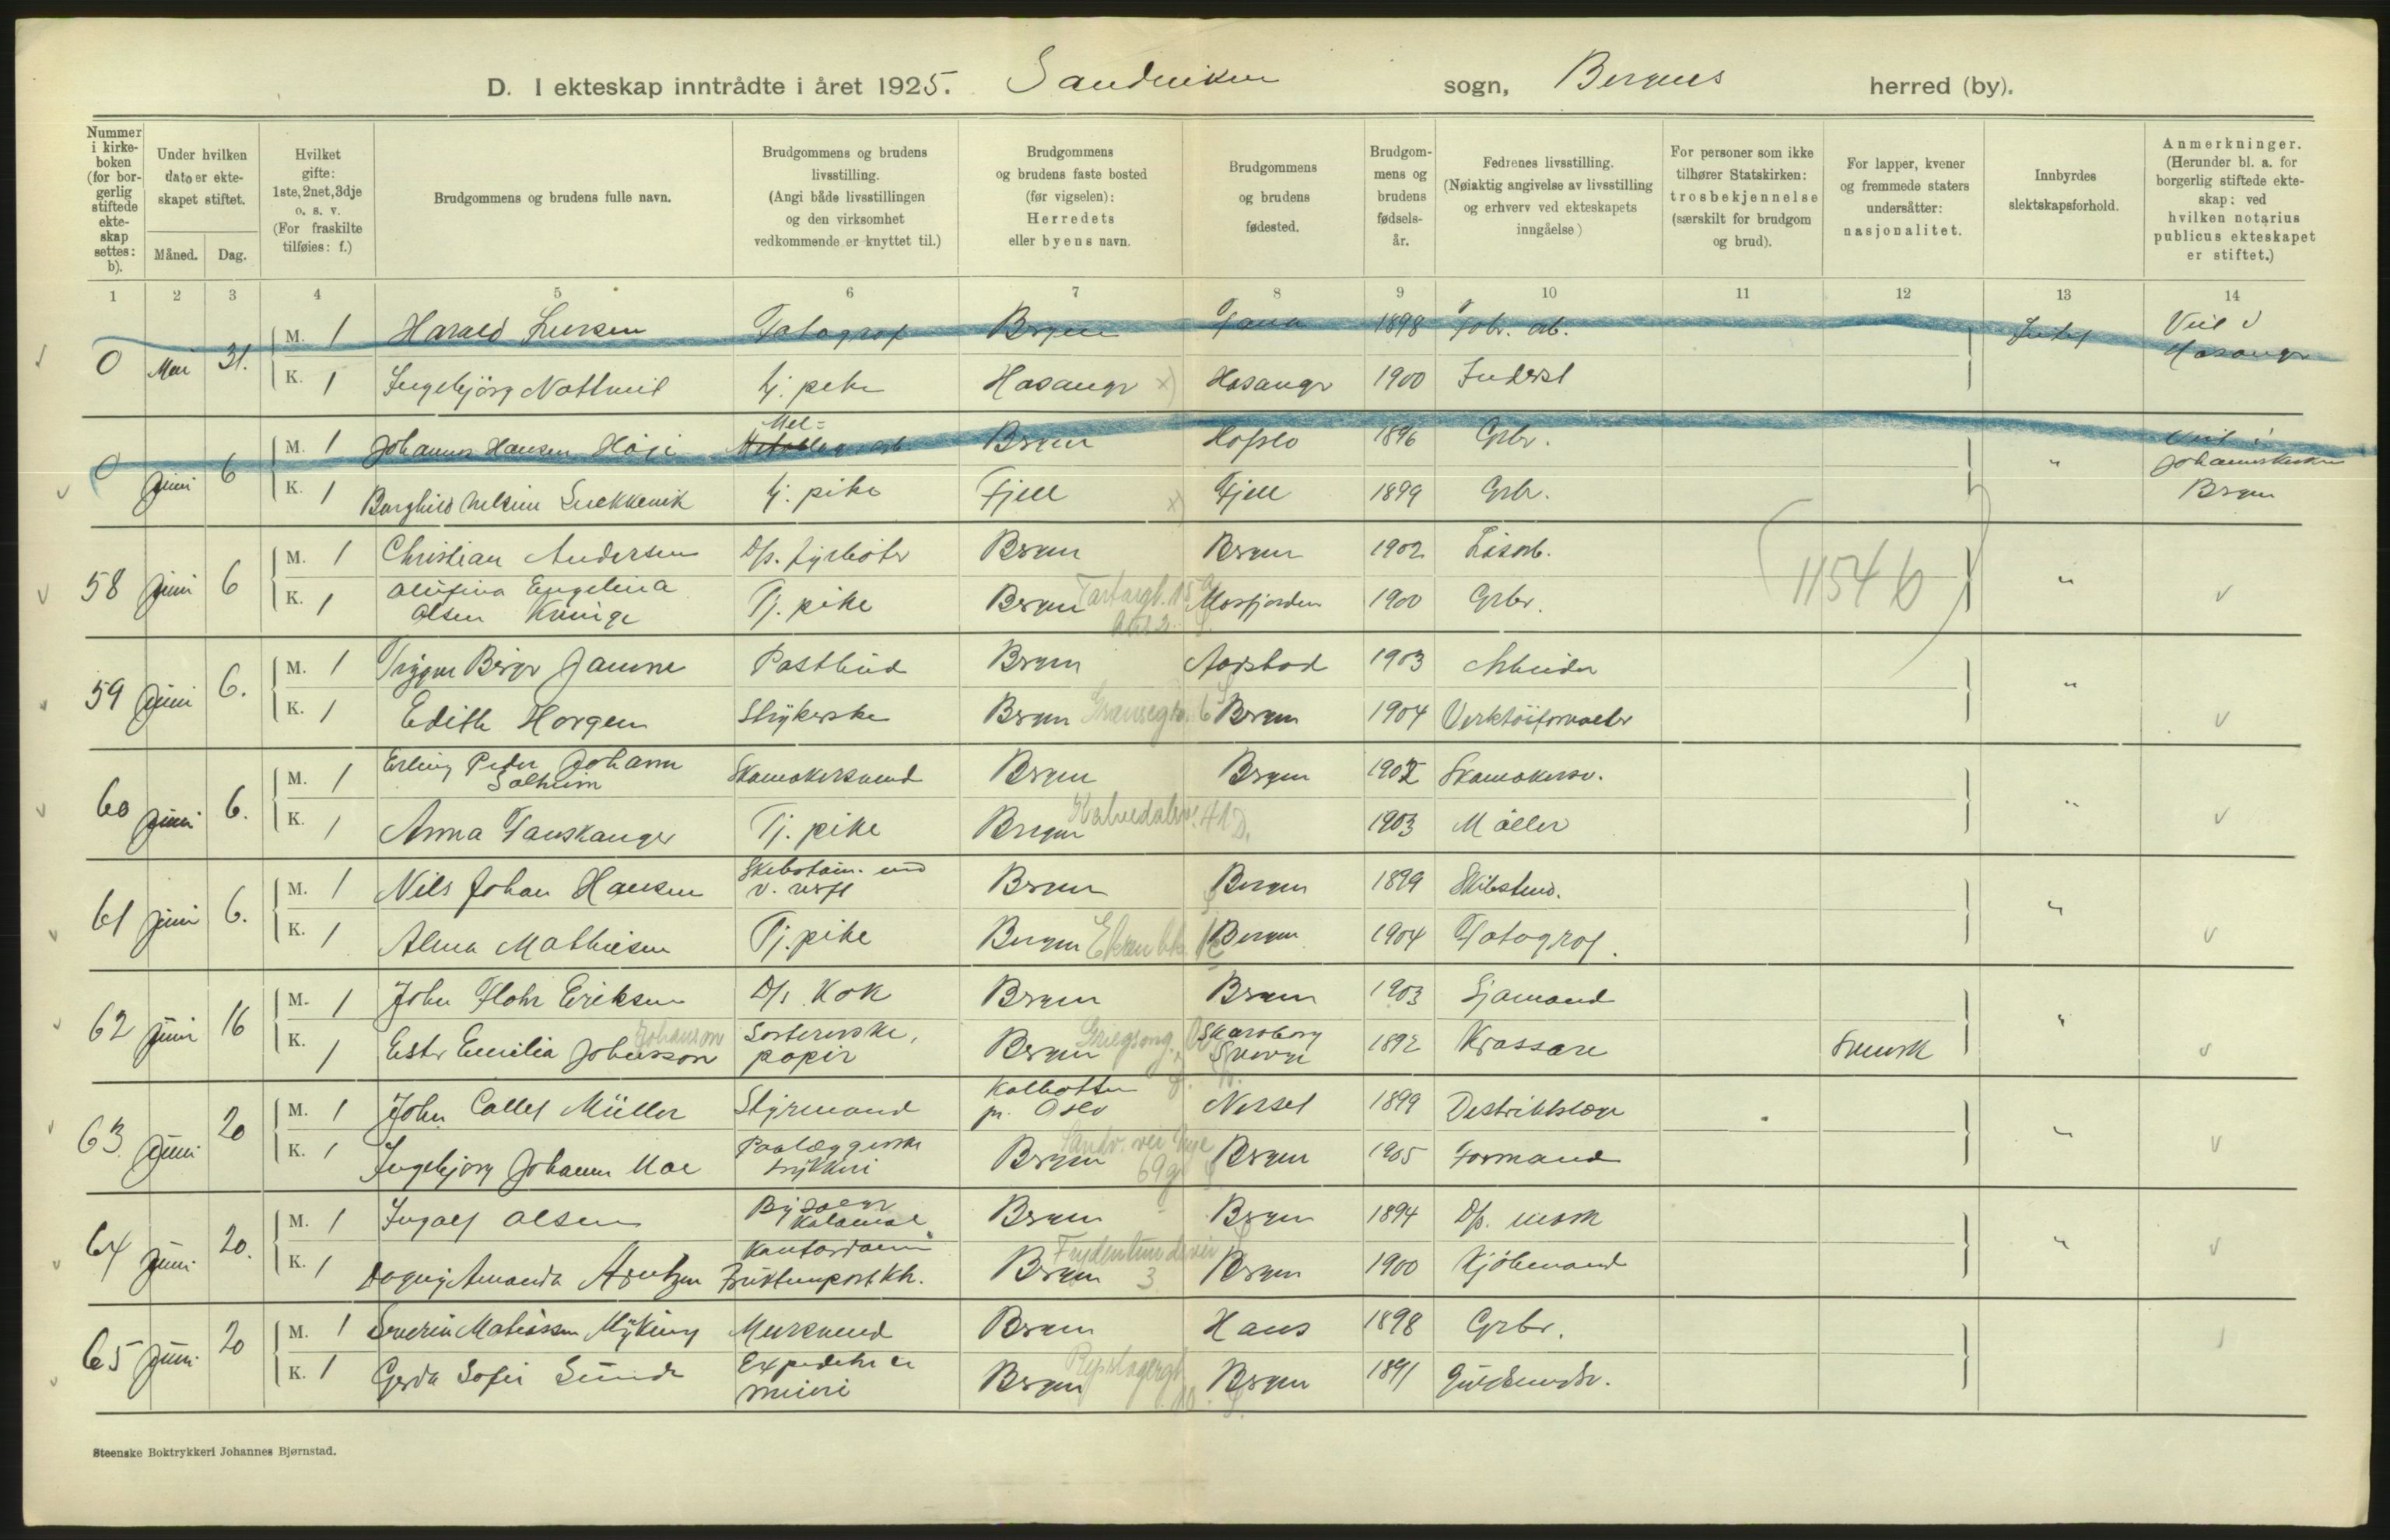 D. I ekteskap inntrådte i året 1925. Sandviken sogn, Bergens herred (by).
Nummer i kirkeboken (for borgerlig stiftede ekteskap settes: b).
Under hvilken dato er ekteskapet stiftet.
Måned. Dag.
Hvilket gifte: 1ste, 2net, 3dje o. s. v. (For fraskilte tilføies: f.)
Brudgommens og brudens fulle navn.
Brudgommens og brudens livsstilling. (Angi både livsstillingen og den virksomhet vedkommende er knyttet til.)
Brudgommens og brudens faste bosted (før vigselen): Herredets eller byens navn.
Brudgommens og brudens fødested.
Brudgommens og brudens fødselsår.
Fedrenes livsstilling. (Nøiaktig angivelse av livsstilling og erhverv ved ekteskapets inngåelse)
For personer som ikke tilhører Statskirken: trosbekjennelse (særskilt for brudgom og brud).
For lapper, kvener og fremmede staters undersåtter: nasjonalitet.
Innbyrdes slektskapsforhold.
Anmerkninger. (Herunder bl. a. for borgerlig stiftede ekteskap: ved hvilken notarius publicus ekteskapet er stiftet.)
1 2 3 4 5 6 7 8 9 10 11 12 13 14
0 Mai 31. M. 1 Harald Fotograf Bergen Fana 1898 arb. Intet Viet i Hosanger
K. 1 Ingebjörg Nottveit tj. pike Hosangr x) Hosangr 1900 Inderst
0 Juni 6 M. 1 Johannes Hansen Mel= Bergen Hafslo 1896 Grbr. " Viet i Johanneskirken Bergen
K. 1 Borghild tj. pike Fjell x) Fjell 1899 Grbr.
58 Juni 6 M. 1 Christian Andersen D/s. fyrböter Bergen Bergen 1902 "
K. 1 Olufina Engelina Olsen Tj. pike Bergen Mosfjorden 1900 Grbr.
(1154 b)
59 Juni 6. M. 1 Trygve Birger Postbud Bergen Aarstad 1903 Arbeider "
K. 1 Edith Horgen Strykerske Bergen Bergen 1904 Verktöiforvalter
60 Juni 6. M. 1 Erling Peder Johann Solheim Skomakersvend Bergen Bergen 1902 Skomakersv. "
K. 1 Anna Tauskanger Tj. pike Bergen Kalvedalsv. 41 D. 1903 Möller
61 Juni 6. M. 1 Nils Johan Hansen v. verft Bergen Bergen 1899 "
K. 1 Alma Mathiesen Tj. pike Bergen Bergen 1904 Fotograf.
62 Juni 16 M. 1 John Flohr Eriksen D/s Kok Bergen Bergen 1903 Sjömand "
K. 1 Ester Emilia Johansson Johanson Sortererske, papir Bergen Skaraborg Sverige 1892 Krassare Svensk
63. Juni 20 M. 1 John Collet Müller Styrmand Kolbotten pr. Oslo 1899 Distriktslæge "
K. 1 Ingebjörg Johanne Moe Paalæggerske trykkeri Bergen Sandv. vei 69 Bergen 1905 Formand
64 Juni 20. M. 1 Ingolf Olsen Bergen Bergen 1894 D/s. "
K. 1 Dagny Amanda Arntzen Kontordame Fruktimport kh. Bergen Frydenlundsvei 3 Bergen 1900 Kjöbmand
65 Juni 20 M. 1 Severin Mathiassen Myking Mursvend Bergen Haus 1898 Grbr.
K. 1 Gerda Sofie Sunde Expeditrice meieri Bergen Repslagergt. 10. Bergen 1891 Guldsmedsv.
Steenske Boktrykkeri Johannes Bjørnstad.